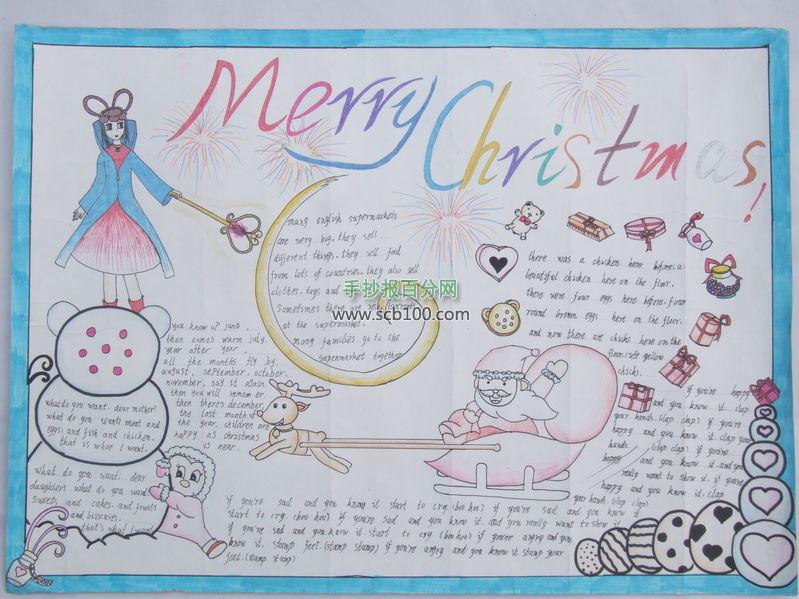 Merry Christmas!
many english supermarkets
are very big. they sell
different things. they sell food
from lots of countries. they also sell
clothes, toys and
Sometimes there are
at the supermarket.
many families go to the
supermarket together
手抄报百分网
www.scb100.com
there was a chicken here before. a
beautiful chicken here on the floor.
there were four eggs here before. four
round brown eggs here on the floor.
and now there are chicks here on the
floor. cute yellow
chicks.
you know up june
then comes warm july.
year after year.
all the months fly by.
august, september, october,
november, say it again
then you will remember.
then there's december
the last month of
the year. children are
happy as christmas
is near.
what do you want. dear mother?
what do you want? meet and
eggs. and fish and chicken.
that is what I want.
what do you want. dear
daughter? what do you want?
sweets and cakes. and fruits
and biscuits.
that's what I want
if you're happy
and you know it. clap
your hands. (clap clap) if you're
happy and you know it. clap your
hands. (clap clap) if you're
happy and you know it. and you
really want to show it. if you're
happy and you know it. clap
your hands. (clap clap)
if you're sad and you know it start to cry (boo hoo) if you're sad and you know it
start to cry (boo hoo) if you're sad and you know it. and you really want to show it
if you're sad and you know it. start to cry (boo hoo) if you're angry and you
know it. stamp feet. (stamp stamp) if you're angry and you know it stamp your
feet. (stamp stamp)